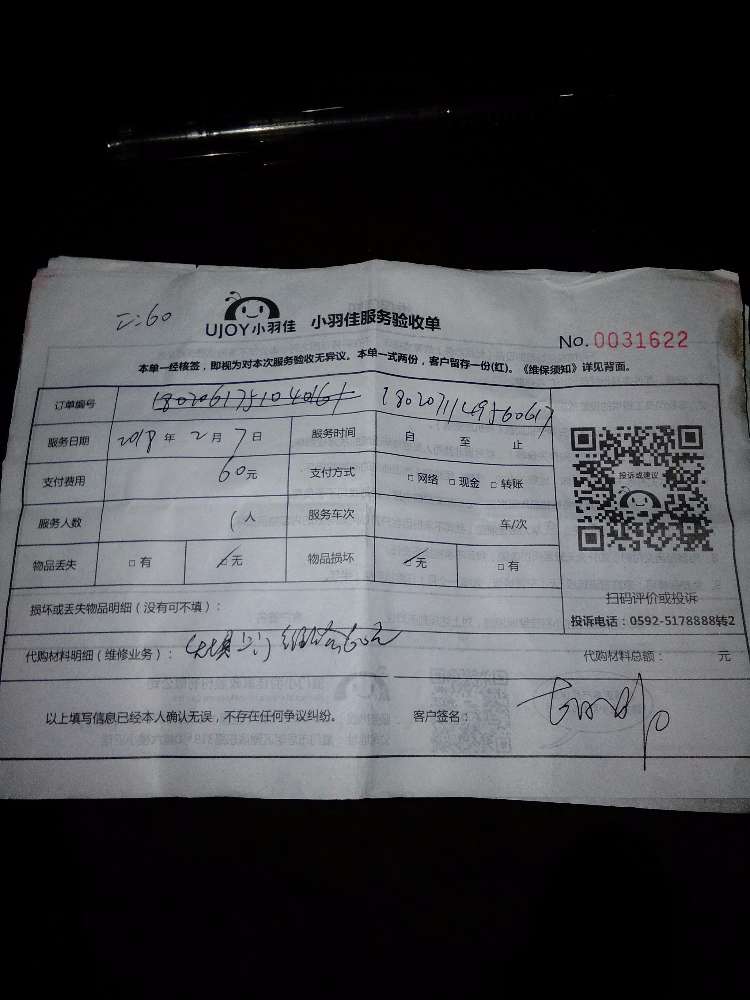 UJOY小羽佳 小羽佳服务验收单
No.0031622
本单一经核签，即视为对本次服务验收无异议。本单一式两份，客户留存一份(红)。《维保须知》详见背面。
订单编号 1802061751040161 18020711495606​17
服务日期 2018年2月7日 服务时间 自 至 止
支付费用 60元 支付方式 □网络 □现金 □转账
服务人数 1人 服务车次 车/次
物品丢失 □有 □无 物品损坏 □无 □有
投诉或建议
扫码评价或投诉
投诉电话：0592-5178888转2
损坏或丢失物品明细（没有可不填）：
代购材料明细（维修业务）： 60元 代购材料总额： 元
以上填写信息已经本人确认无误，不存在任何争议纠纷。 客户签名：